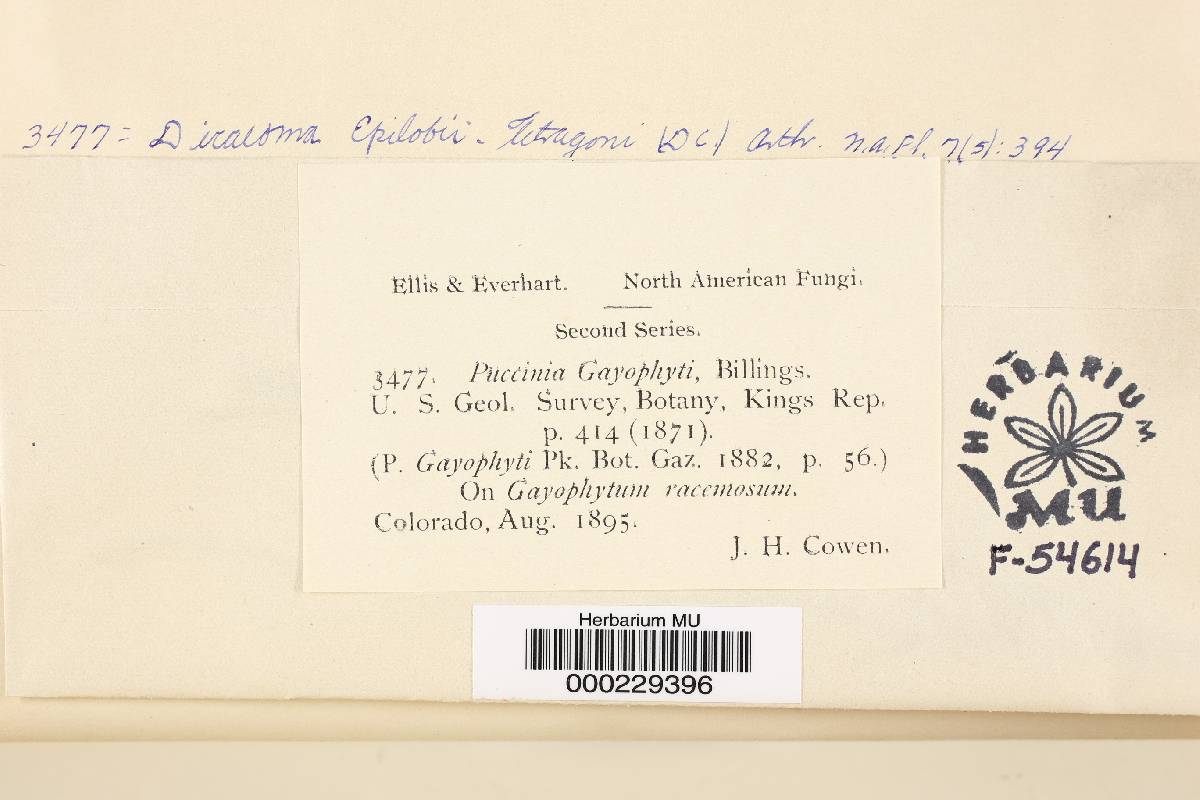 3477 = Dicaeoma Epilobii - Tetragoni (DC.) Arthr. N.a.Fl. 7(5):394
Ellis & Everhart. North American Fungi.
Second Series.
3477. Puccinia Gayophyti, Billings.
U. S. Geol. Survey, Botany, Kings Rep.
p. 414 (1871).
(P. Gayophyti Pk. Bot. Gaz. 1882, p. 56.)
On Gayophytum racemosum.
Colorado, Aug. 1895.
J. H. Cowen.
HERBARIUM
MU
F-54614
Herbarium MU
000229396